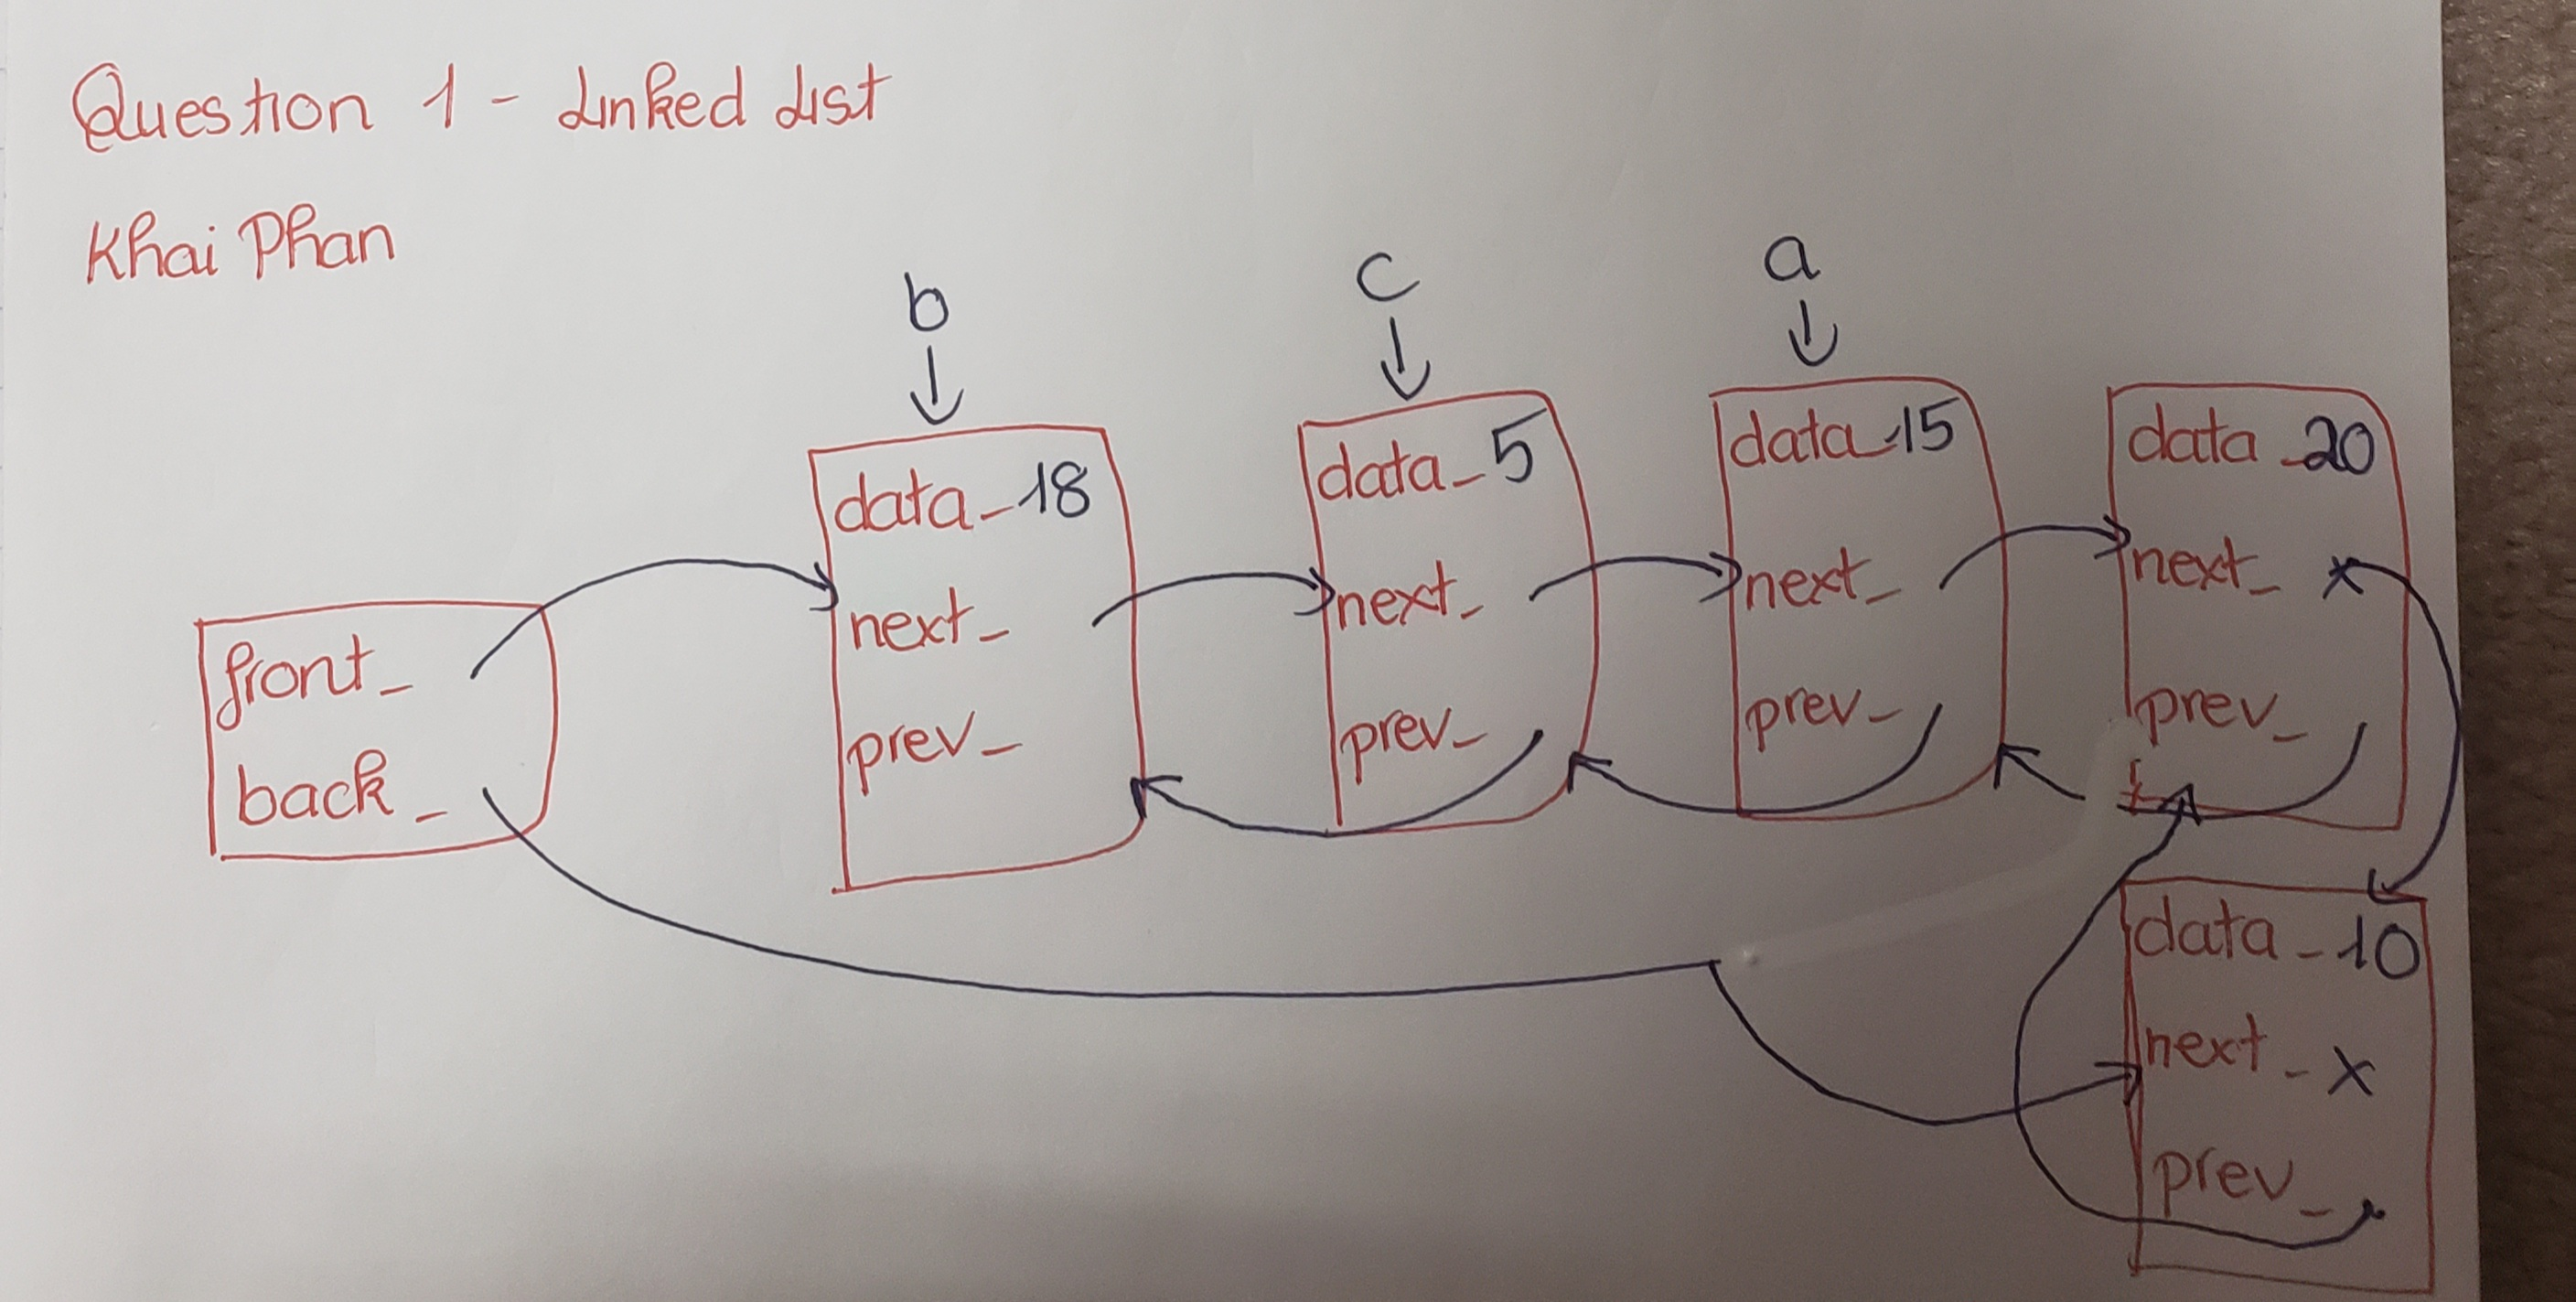 Question 1 - Linked List
Khai Phan
b
c
a
data_ 18
next_
prev_
data_ 5
next_
prev_
data_ 15
next_
prev_
data_ 20
next_ x
prev_
front_
back_
data_ 10
next_ x
prev_